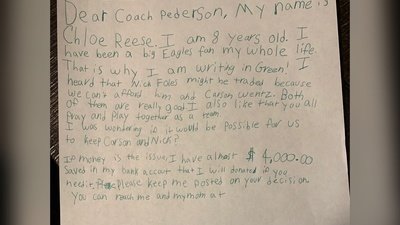 Dear Coach Pederson, My name is
Chloe Reese. I am 8 years old. I
have been a big Eagles fan my whole life.
That is why I am writhg in Green! I
heard that Nick Foles might be traded because
we can't afford him and Carson wentz. Both
of them are really good I also like that you all
Pray and Play together as a team.
I was wondering if it would be possible for us
to keep Carson and Nick?
If money is the issue, I have almost $ 4,000.00
Saved in my bank account that I will donated if you
need it. Please keep me posted on your decision.
You can reach me and my mom at